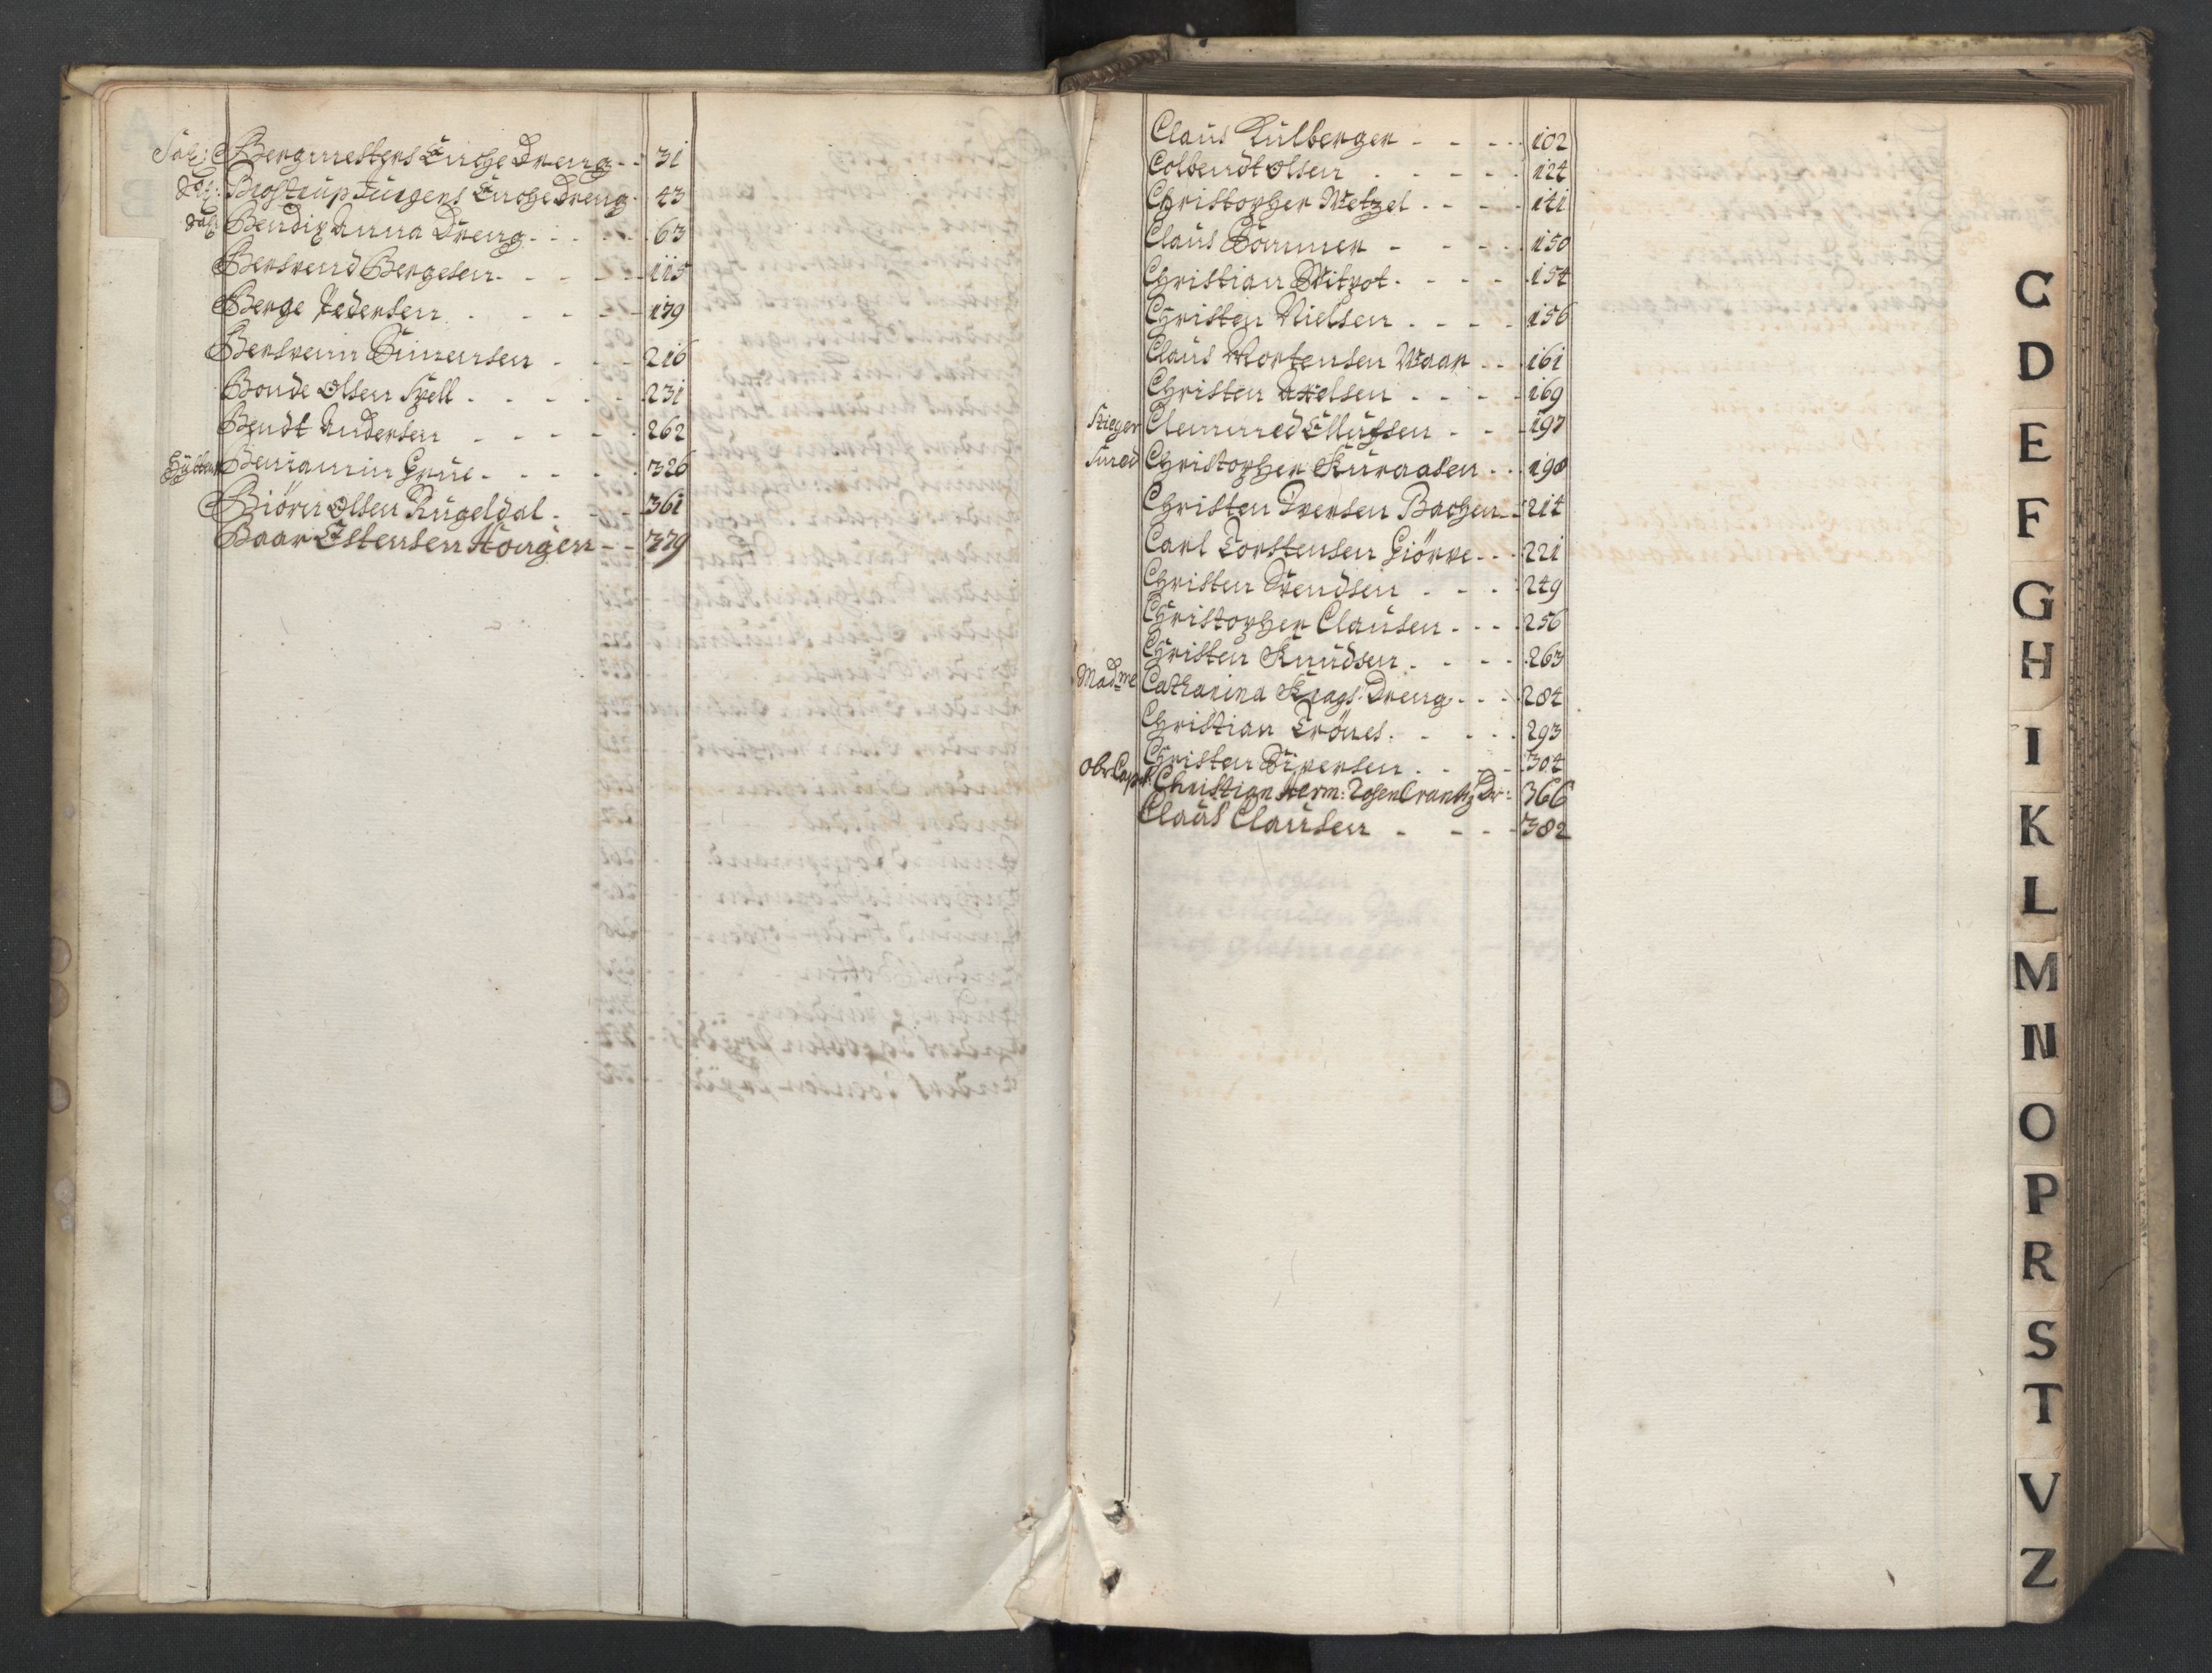 Sal: Bergmesters Enche Dreng - - 31
Sal: Brostrup Jürgens Enche Dreng - 43
Sal: Bendix Anna Dreng - - - - 63
Bersvend Bergesen - - - - - 115
Berge Pedersen - - - - - 179
Bersvenn Simensen - - - 216
Bonde Olsen Fyell - - - - - 231
Bendt Andersen - - - - - 262
Benjamin Grue - - - - - 326
Biörn Olsen Rugeldal - - - 361
Baar Estensen Hougen - - 379
Claus Külberger - - - - 102
Colbendt Olsen - - - - - 124
Christopher Metzel - - - - 141
Claus Bömmer - - - - 150
Christian Witrot - - - - 154
Christen Nielsen - - - - 156
Claus Mortensen Maar - - - 161
Christen Axelsen - - - - 169
Stieger Clemmed Ellüfsen - - - 197
Smed Christopher Kuraasen - - 198
Christen Iversen Bachen - - 214
Carl Torstensen Giörve - - - 221
Christen Svendsen - - - 249
Christopher Clausen - - - - 256
Christen Knudsen - - - - 263
Madme Catharina Krags Dreng - - - 284
Christian Trönes - - - - - 293
Christen Siversen - - - - 304
Obr Capt Christian Herm: Rosencrantz Dr: 366
Claus Clausen - - - - 382
C
D
E
F
G
H
I
K
L
M
N
O
P
R
S
T
V
Z